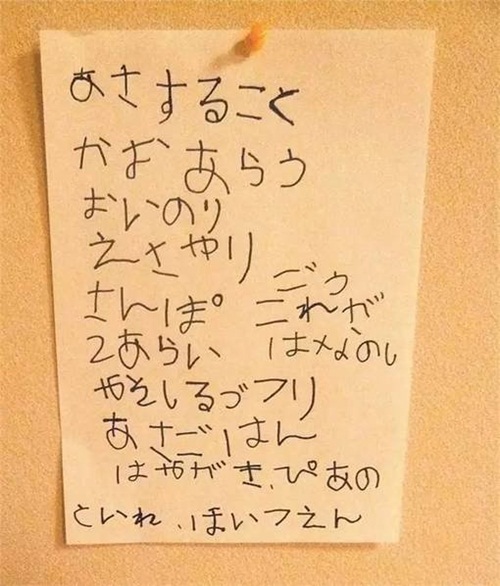 あさすること
かおあらう
おいのり
えさやり
さんぽ
てあらい
みそしるづくり
あさごはん
はみがき、ぴあの
といれ、ほいくえん
ごう
これが